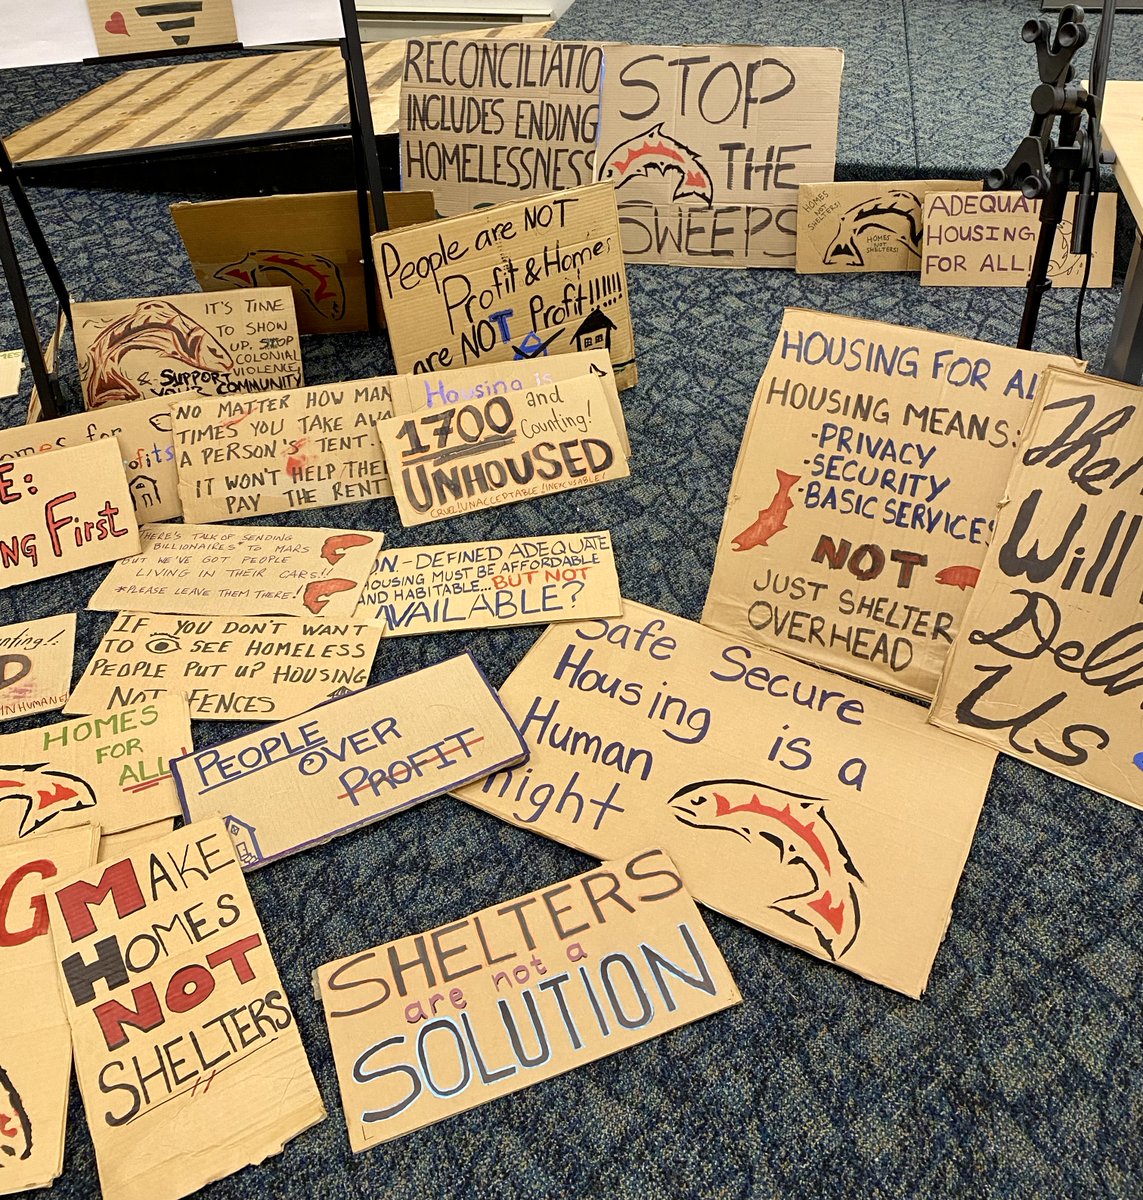 RECONCILIATIO
INCLUDES ENDING
HOMELESSNESS
STOP
THE
SWEEPS
HOMES
NOT
SHELTERS!
HOMES NOT
SHELTERS!
ADEQUAT
HOUSING
FOR ALL!
People are NOT
Profit & Homes
are NOT Profit!!!!!!
IT'S TIME
TO SHOW
UP, STOP
COLONIAL
VIOLENCE,
& SUPPORT
YOUR COMMUNITY
NO MATTER HOW MAN
TIMES YOU TAKE AWA
A PERSON'S TENT
IT WON'T HELP THEM
PAY THE RENT
Housing is
1700 and
Counting!
UNHOUSED
CRUEL! UNACCEPTABLE! INEXCUSABLE!
omes for
ofits
E:
NG First
THERE'S TALK OF SENDING
BILLIONAIRES* TO MARS
BUT WE'VE GOT PEOPLE
LIVING IN THEIR CARS!!
*PLEASE LEAVE THEM THERE!
ON-DEFINED ADEQUATE
HOUSING MUST BE AFFORDABLE
AND HABITABLE... BUT NOT
AVAILABLE?
HOUSING FOR AL
HOUSING MEANS:
-PRIVACY
-SECURITY
-BASIC SERVICES
NOT
JUST SHELTER
OVERHEAD
The
Will
Deli
Us
unting!
D
INHUMANE
IF YOU DON'T WANT
TO SEE HOMELESS
PEOPLE PUT UP HOUSING
NOT FENCES
HOMES
FOR
ALL
PEOPLE
OVER
PROFIT
Safe Secure
Housing is a
Human
right
G
MAKE
HOMES
NOT
SHELTERS
SHELTERS
are not a
SOLUTION